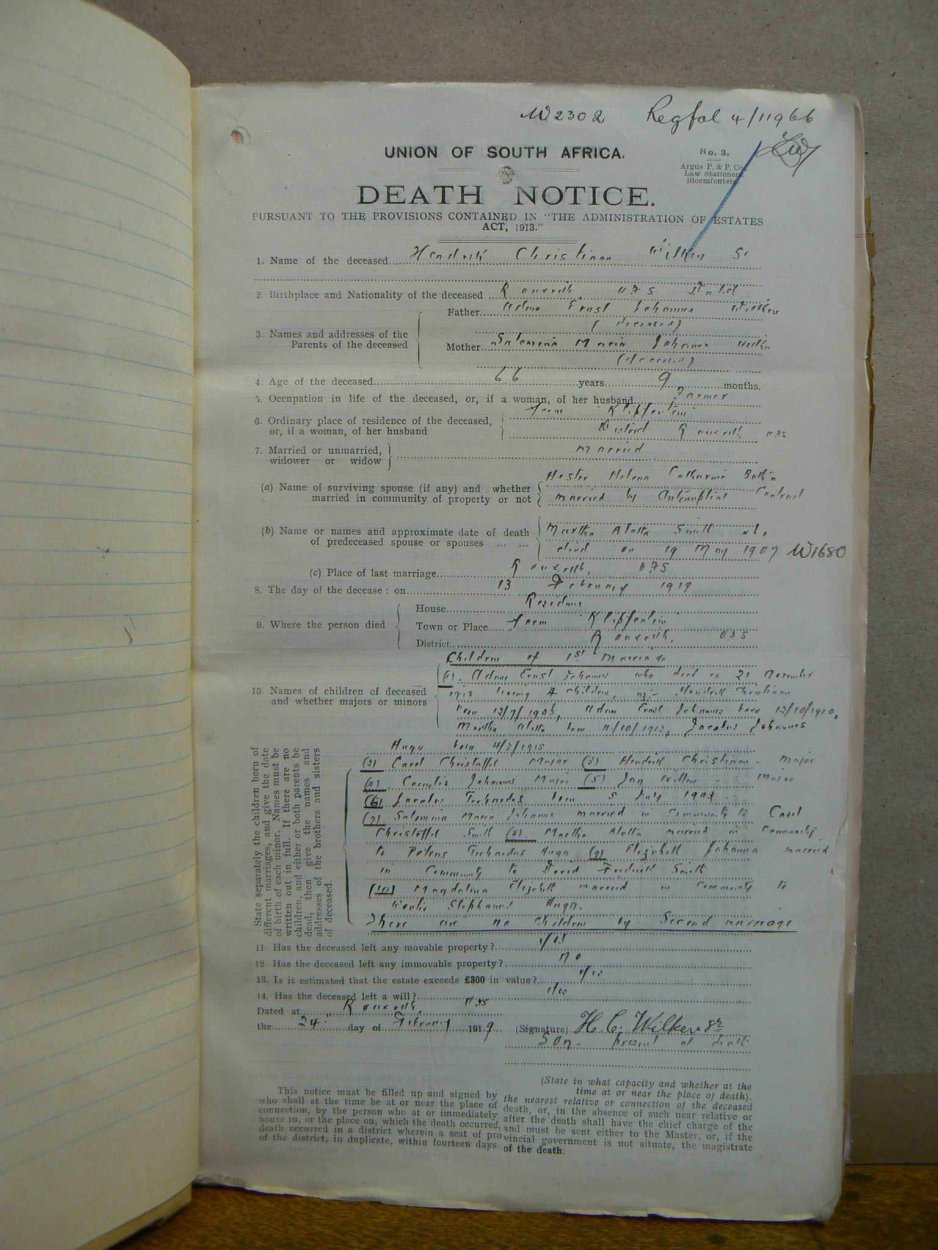 W2302 Regfol 4/11966
UNION OF SOUTH AFRICA.
No. 3.
Argus P. & P. Co.
Law Stationers
Bloemfontein
DEATH NOTICE.
PURSUANT TO THE PROVISIONS CONTAINED IN "THE ADMINISTRATION OF ESTATES
ACT, 1913."
1. Name of the deceased Hendrik Christiaan Wilken Sr
2. Birthplace and Nationality of the deceased Rouxville OFS Dutch
3. Names and addresses of the Parents of the deceased
Father Adam Ernst Johannes Wilken
(deceased)
Mother Salomina Maria Johanna Wilken
(deceased)
4. Age of the deceased 66 years 9 months.
5. Occupation in life of the deceased, or, if a woman, of her husband Farmer
6. Ordinary place of residence of the deceased, or, if a woman, of her husband
Farm Klipfontein
District Rouxville OFS
7. Married or unmarried, widower or widow married
(a) Name of surviving spouse (if any) and whether married in community of property or not
Hester Helena Catharina Botha
married by Antenuptial Contract
(b) Name or names and approximate date of death of predeceased spouse or spouses ... ...
Martha Aletta Smith who
died on 19 May 1907 W1680
(c) Place of last marriage Rouxville, OFS
8. The day of the decease: on 13 February 1919
9. Where the person died
House Residence
Town or Place Farm Klipfontein
District Rouxville, OFS
10. Names of children of deceased and whether majors or minors
Children of 1st Marriage
(1) Adam Ernst Johannes who died on 21 November
1918 leaving 4 children, viz:- Hendrik Christiaan
born 13/7/1908, Adam Ernst Johannes born 12/10/1910,
Martha Aletta born 11/10/1912, Jacobus Johannes
Hugo born 4/3/1915
State separately the children born of different marriages, and give the date of birth of each minor. Names must be written out in full. If there are no children, and either or both parents be dead, then give the names and addresses of the brothers and sisters of deceased.
(2) Carel Christoffel Major (3) Hendrik Christiaan Major
(4) Cornelis Johannes Major (5) Jan Willem Major
(6) Jacobus Gerhardus born 5 July 1903
(7) Salomina Maria Johanna married in Community to Carel
Christoffel Smith (8) Martha Aletta married in Community
to Petrus Gerhardus Hugo (9) Elizabeth Johanna married
in Community to David Frederick Smith
(10) Magdalena Elizabeth married in Community to
Stephanus Hugo.
There are no children by Second marriage
11. Has the deceased left any movable property? Yes
12. Has the deceased left any immovable property? no
13. Is it estimated that the estate exceeds £300 in value? Yes
14. Has the deceased left a will? Yes
Dated at Rouxville, OFS
the 24th day of February 1919 (Signature) H. C. Wilken Sr
Son. present at death
(State in what capacity and whether at the time at or near the place of death).
This notice must be filled up and signed by the nearest relative or connection of the deceased
who shall at the time be at or near the place of death, or, in the absence of such near relative or
connection, by the person who at or immediately after the death shall have the chief charge of the
house in, or the place on, which the death occurred, and must be sent either to the Master, or, if the
death occurred in a district wherein a seat of provincial government is not situate, the magistrate
of the district, in duplicate, within fourteen days of the death.